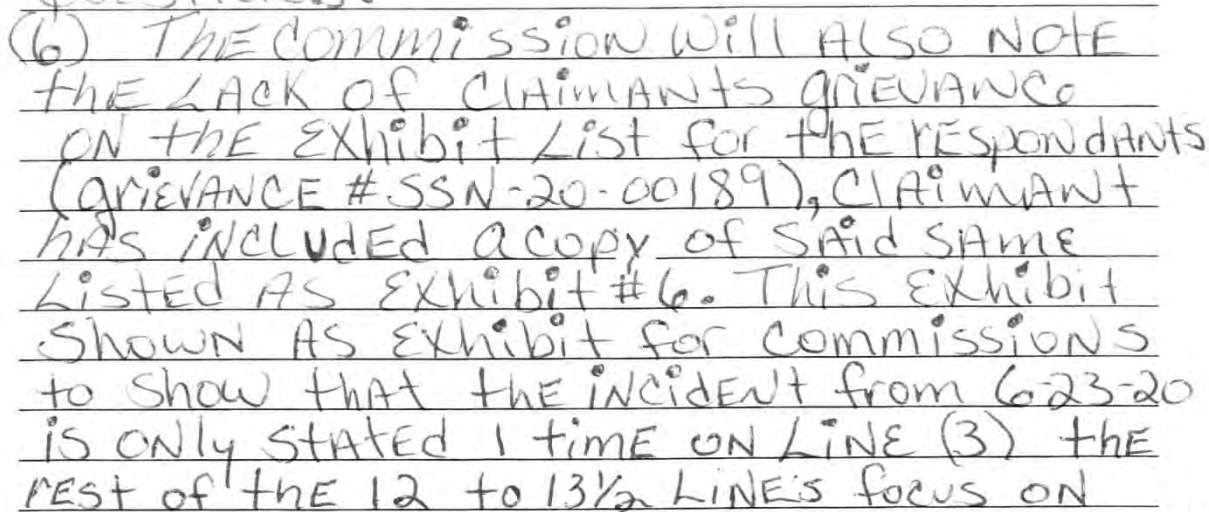 (6) The Commission will also note
the lack of claimants grievance
on the Exhibit List for the respondants
(grievance # SSN-20-00189), claimant
has included a copy of said same
Listed as Exhibit #6. This Exhibit
Shown as Exhibit for Commissions
to show that the incident from 6-23-20
is only stated 1 time on Line (3) the
rest of the 12 to 13½ Line's focus on